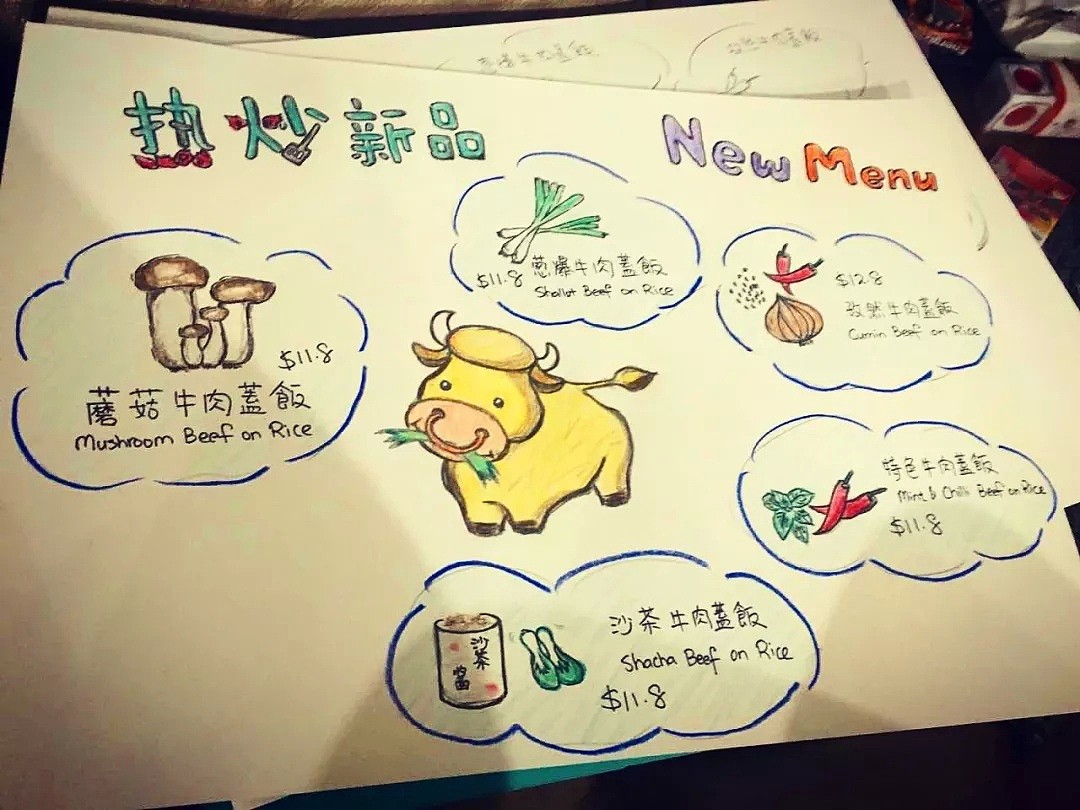 热炒新品
New Menu
$11.8
蘑菇牛肉蓋飯
Mushroom Beef on Rice
$11.8
葱爆牛肉蓋飯
Shallot Beef on Rice
$12.8
孜然牛肉蓋飯
Cumin Beef on Rice
特色牛肉蓋飯
Mint & Chilli Beef on Rice
$11.8
沙茶
醬
沙茶牛肉蓋飯
Shacha Beef on Rice
$11.8